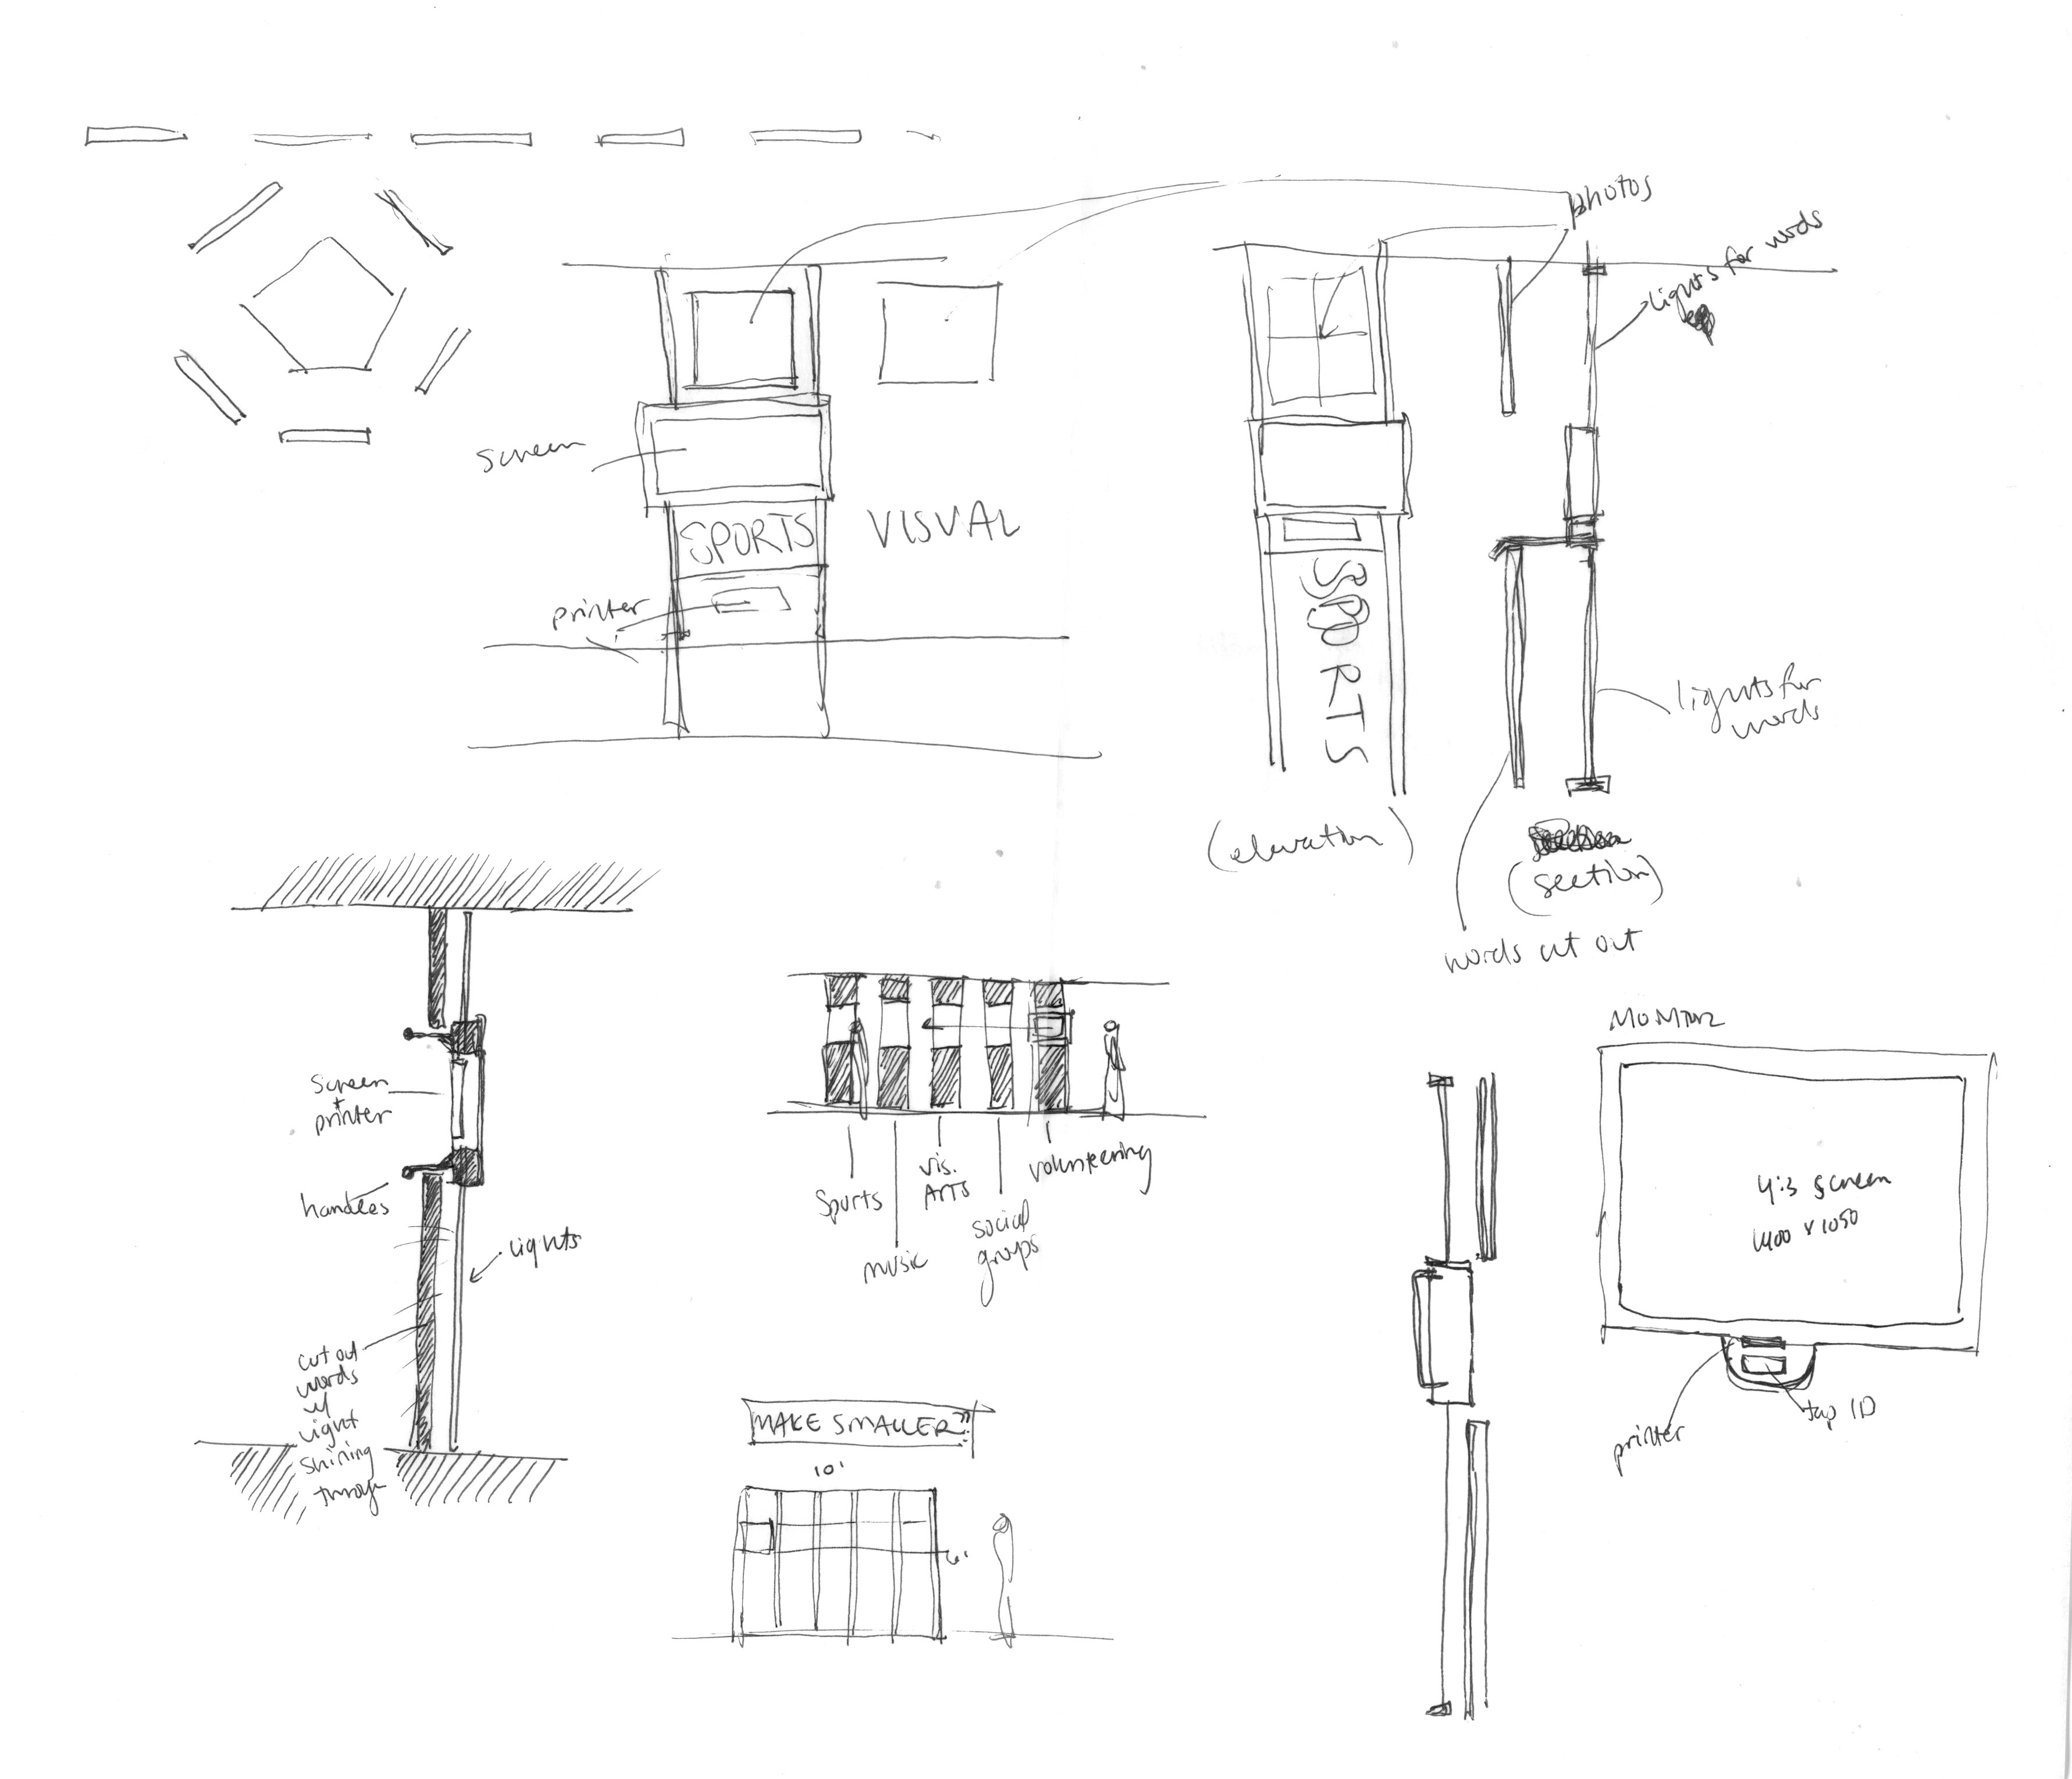 photos
lights for words
screen
SPORTS
VISUAL
printer
SPORTS
lights for
words
(elevation)
(section)
words cut out
screen
+
printer
handles
lights
cut out
words
w/
light
shining
through
Sports
music
vis.
ARTS
social
groups
volunteering
MONITOR
4:3 screen
1400 x 1050
printer
tap ID
MAKE SMALLER
10'
6'